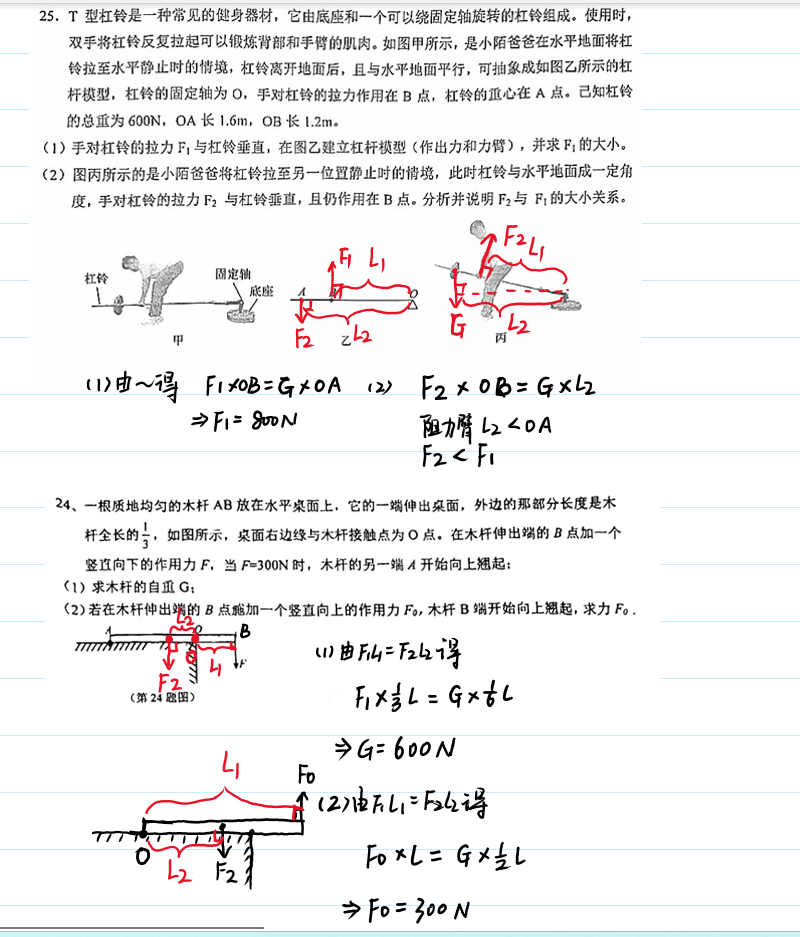 25. T 型杠铃是一种常见的健身器材，它由底座和一个可以绕固定轴旋转的杠铃组成。使用时，
双手将杠铃反复拉起可以锻炼背部和手臂的肌肉。如图甲所示，是小陌爸爸在水平地面将杠
铃拉至水平静止时的情境，杠铃离开地面后，且与水平地面平行，可抽象成如图乙所示的杠
杆模型，杠铃的固定轴为 O，手对杠铃的拉力作用在 B 点，杠铃的重心在 A 点。已知杠铃
的总重为 600N，OA 长 1.6m，OB 长 1.2m。
（1）手对杠铃的拉力 F₁ 与杠铃垂直，在图乙建立杠杆模型（作出力和力臂），并求 F₁ 的大小。
（2）图丙所示的是小陌爸爸将杠铃拉至另一位置静止时的情境，此时杠铃与水平地面成一定角
度，手对杠铃的拉力 F₂ 与杠铃垂直，且仍作用在 B 点。分析并说明 F₂ 与 F₁ 的大小关系。
F₁ L₁ F₂ L₁
杠铃 固定轴 底座 A O
F₂ L₂ G L₂
甲 乙 丙
(1) 由～得 F₁×OB=G×OA (2) F₂×OB=G×L₂
⇒F₁=800N 阻力臂 L₂<OA
F₂<F₁
24、一根质地均匀的木杆 AB 放在水平桌面上，它的一端伸出桌面，外边的那部分长度是木
杆全长的1/3，如图所示，桌面右边缘与木杆接触点为 O 点。在木杆伸出端的 B 点加一个
竖直向下的作用力 F，当 F=300N 时，木杆的另一端 A 开始向上翘起：
（1）求木杆的自重 G；
（2）若在木杆伸出端的 B 点施加一个竖直向上的作用力 F₀，木杆 B 端开始向上翘起，求力 F₀．
L₂
A O B
O L₁ F
F₂
（第 24 题图）
(1) 由F₁L₁=F₂L₂得
F₁×1/3L=G×1/6L
⇒G=600N
L₁ F₀
(2)由F₁L₁=F₂L₂得
O L₂ F₂
F₀×L=G×1/2L
⇒F₀=300N